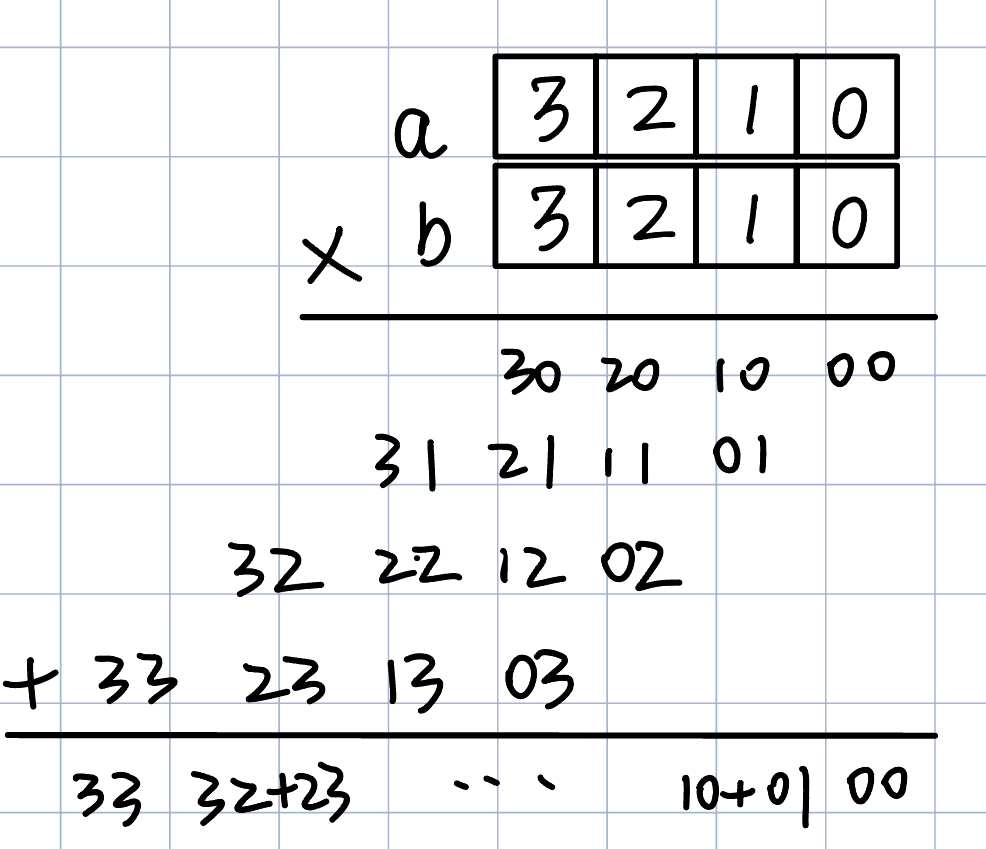 a 3 2 1 0
× b 3 2 1 0
30 20 10 00
31 21 11 01
32 22 12 02
+ 33 23 13 03
33 32+23 ... 10+01 00